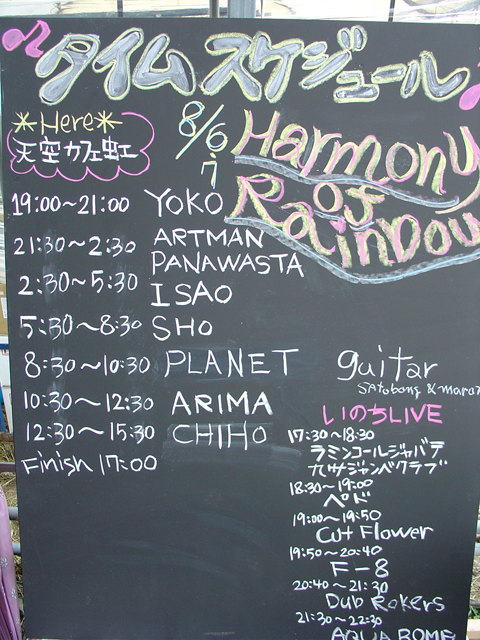 タイムスケジュール
*Here*
天空カフェ虹
8/6,7
Harmony
of
Rainbow
19:00~21:00 YOKO
21:30~2:30 ARTMAN
PANAWASTA
2:30~5:30 ISAO
5:30~8:30 SHO
8:30~10:30 PLANET
10:30~12:30 ARIMA
12:30~15:30 CHIHO
Finish 17:00
guitar
satobong &
いのちLIVE
17:30~18:30
ラミンコールジャバテ
九州ジャンベクラブ
18:30~19:00
19:00~19:50
Cut Flower
19:50~20:40
F-8
20:40~21:30
Dub Rokers
21:30~22:30
AQUA ROME